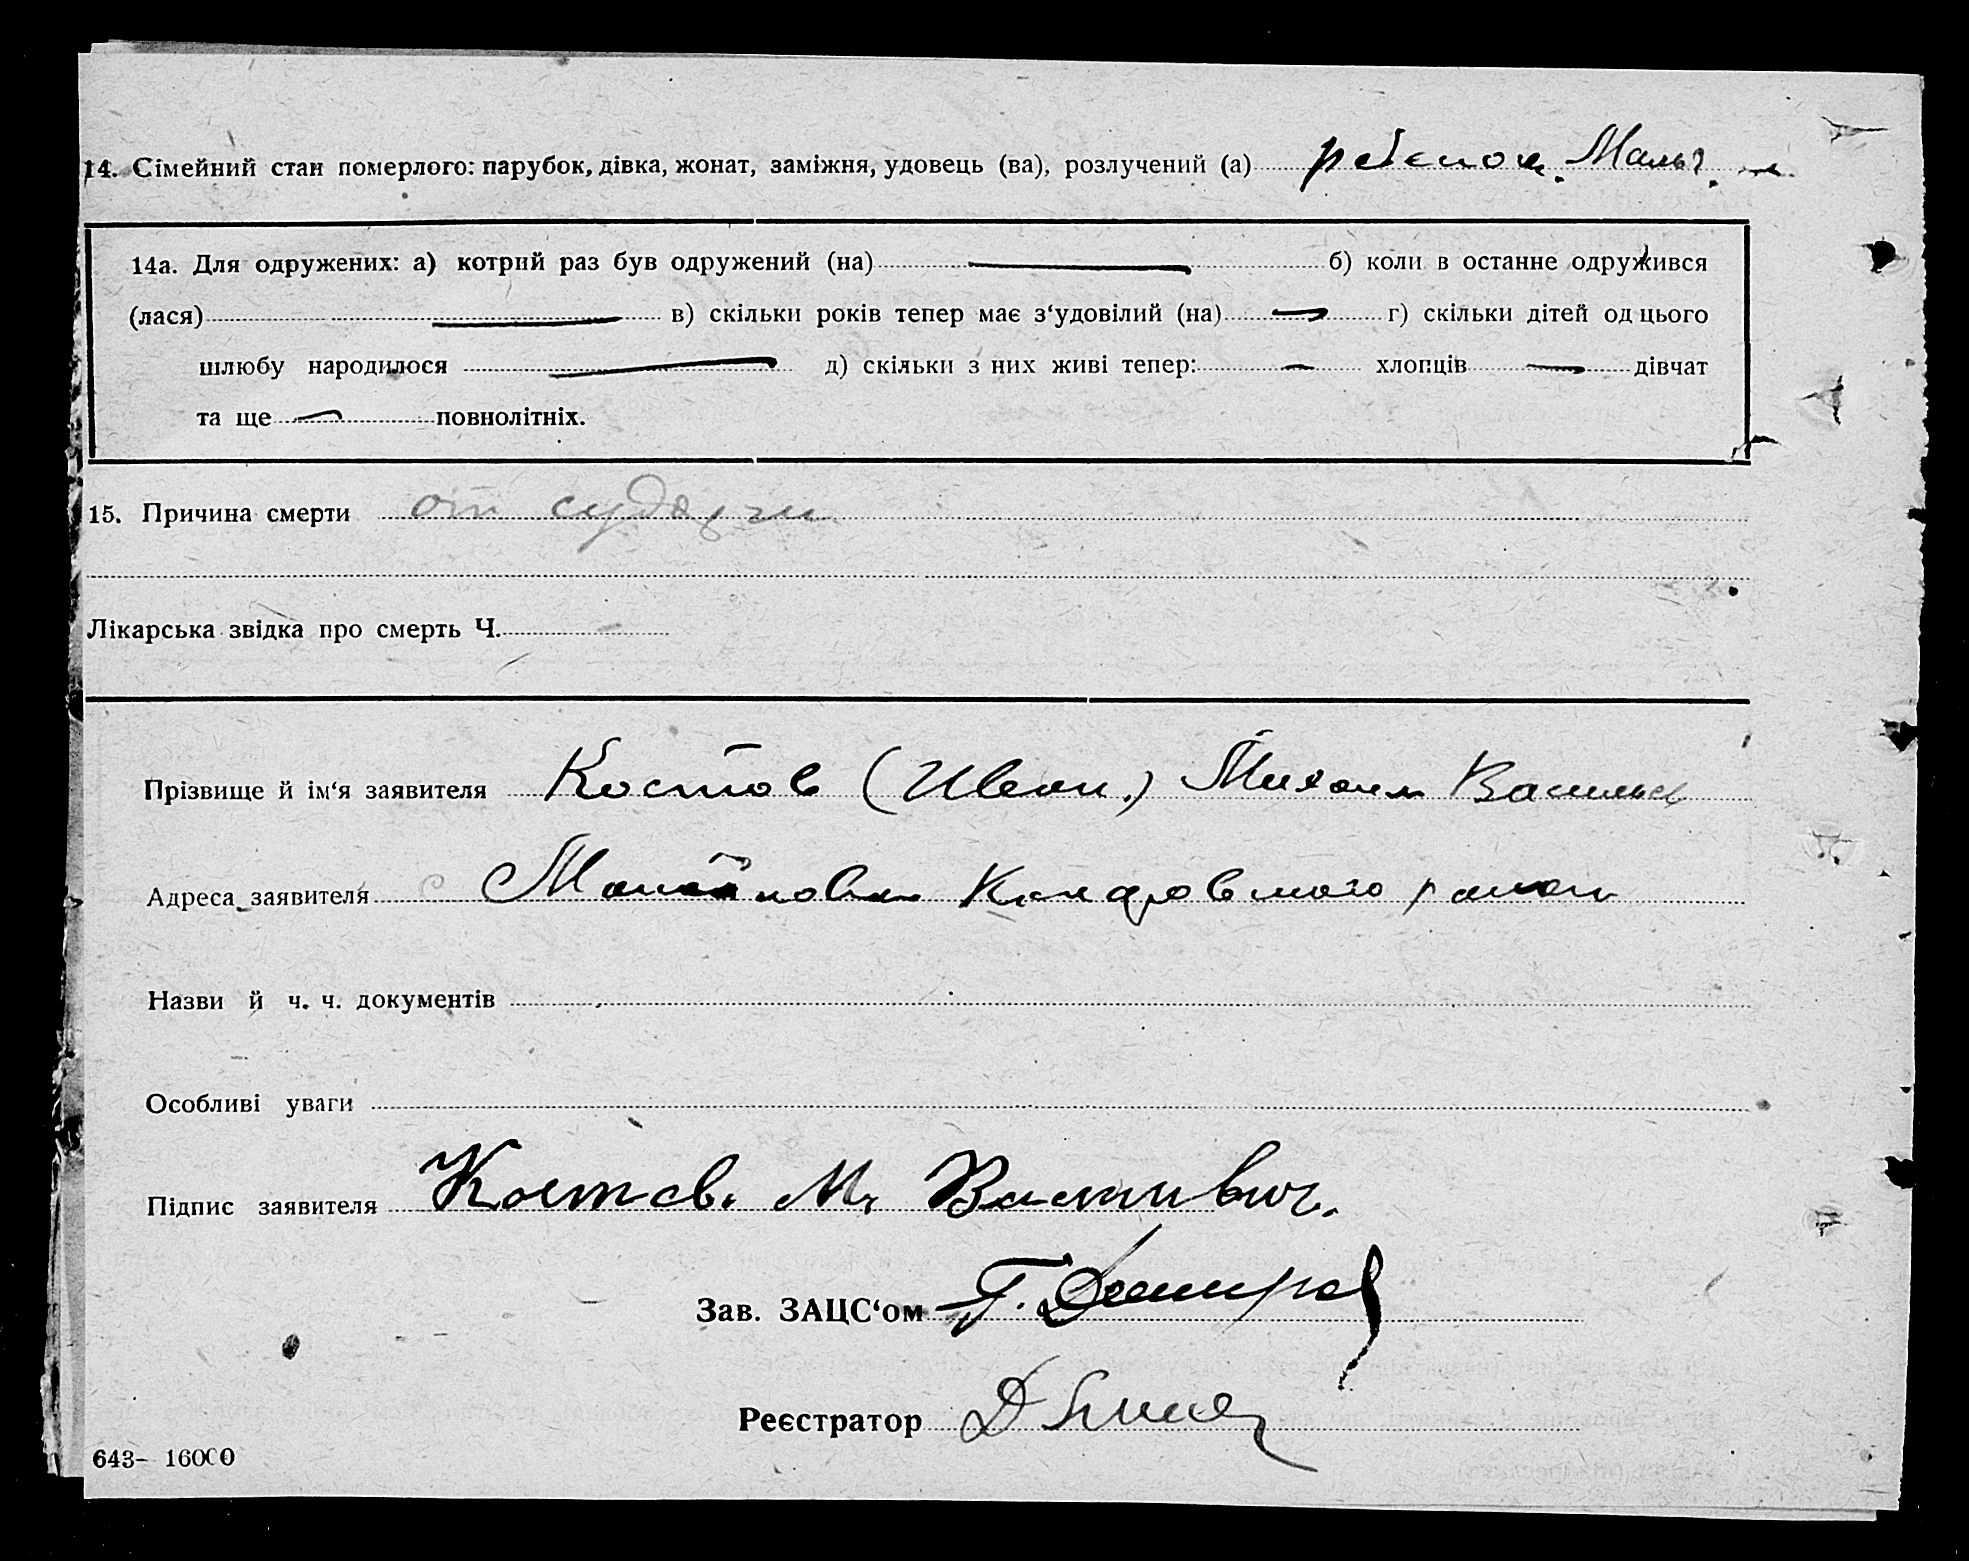 14. Сімейний стан померлого: парубок, дівка, жонат, заміжня, удовець (ва), розлучений (а) ребенок. Мальч.
14а. Для одружених: а) котрий раз був одружений (на) — б) коли в останне одружився
(лася) — в) скільки років тепер має з‘удовілий (на) — г) скільки дітей од цього
шлюбу народилося — д) скільки з них живі тепер: — хлопців — дівчат
та ще — повнолітніх.
15. Причина смерти от судорги
Лікарська звідка про смерть Ч.
Прізвище й ім‘я заявителя Костов (Иван.) Михаил Васильев
Адреса заявителя с
Назви й ч. ч. документів
Особливі уваги
Підпис заявителя Костов. М. Василивич.
Зав. ЗАЦС‘ом Г.
Реєстратор
643– 16000